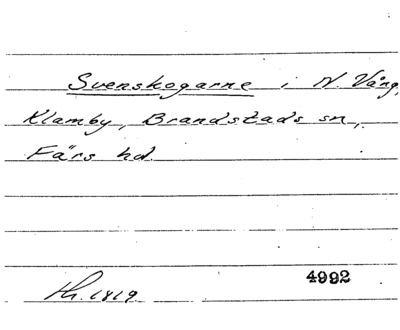 Svenskogarne i N. Vång,
Klamby, Brandstads sn,
Färs hd.
4992
Hr. 1819